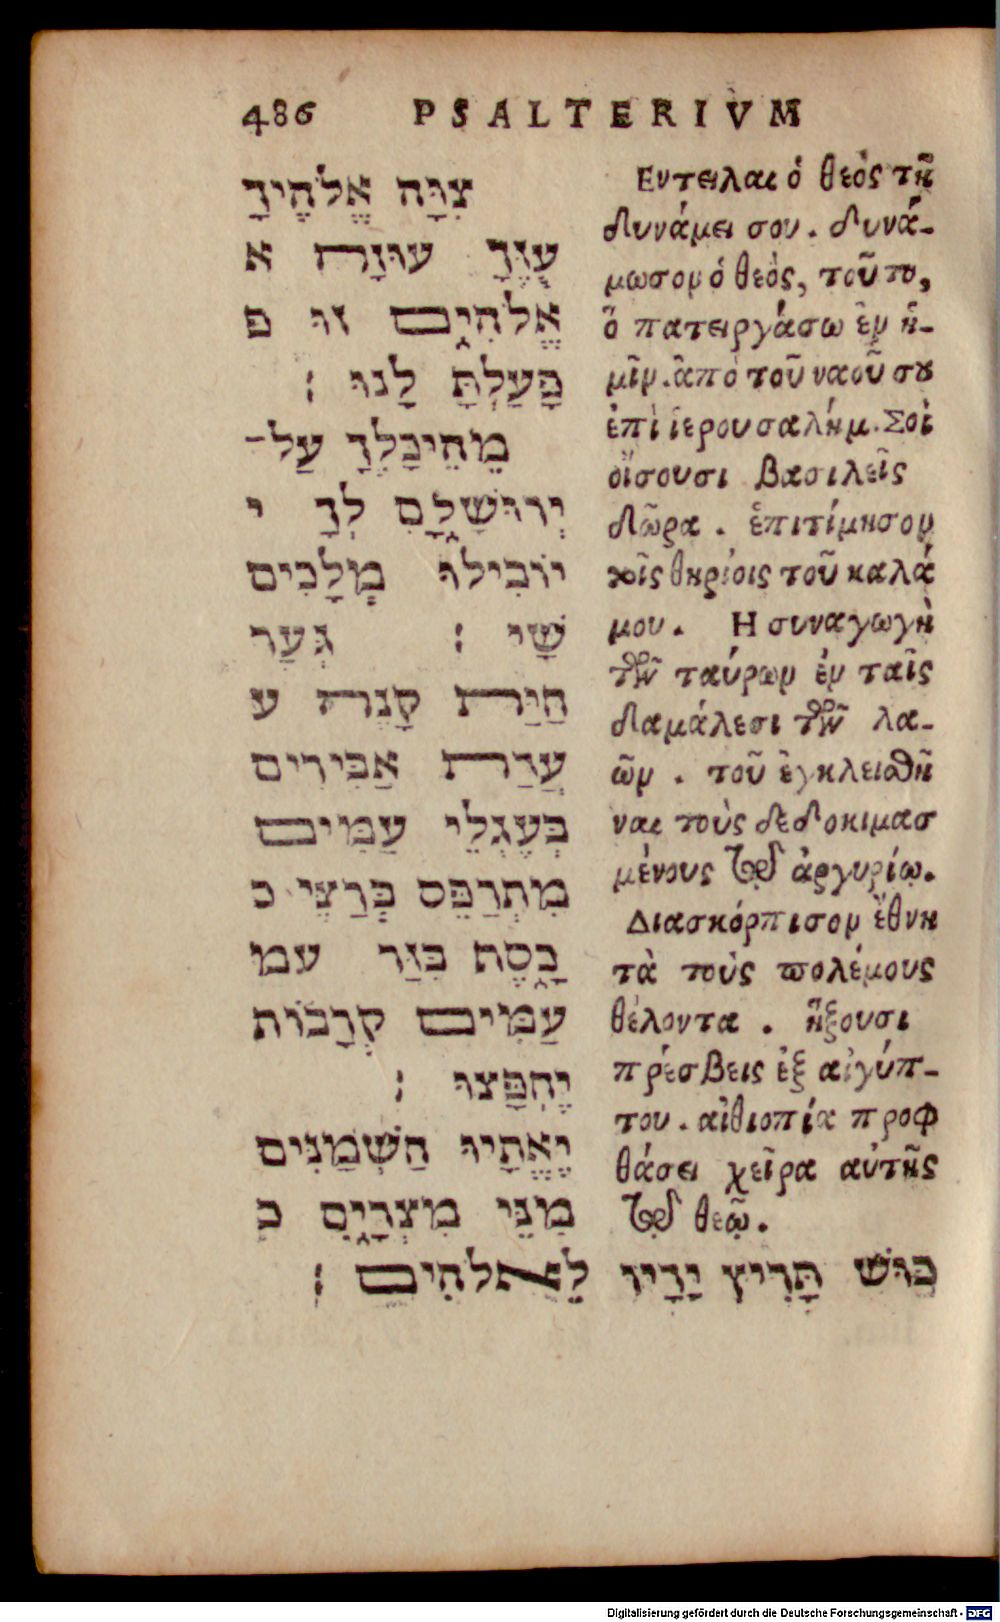 486 PSALTERIVM
צִוָּה אֱלֹהֶיךָ
עֻזֶּךָ עוּזָּה א
אֱלֹהִים זוּ פ
פָּעַלְתָּ לָנוּ ׃
מֵהֵיכָלֶךָ עַל־
יְרוּשָׁלָםִ לְךָ י
יוֹבִילוּ מְלָכִים
שָׁי ׃ גְּעַר
חַיַּת קָנֶה ע
עֲדַת אַבִּירִים
בְּעֶגְלֵי עַמִּים
מִתְרַפֵּס בְּרַצֵּי כ
כָסֶת בִּזַּר עמ
עַמִּים קְרָבוֹת
יֶחְפָּצוּ ׃
יֶאֱתָיוּ חַשְׁמַנִּים
מִנִּי מִצְרָיִם כ
כּוּשׁ תָּרִיץ יָדָיו לֵאלֹהִים ׃
Εντειλαι ὁ θεὸς τῇ
δυνάμει σου. δυνά-
μωσον ὁ θεὸς, τοῦτο,
ὃ κατειργάσω ἐν ἡ-
μῖν. ἀπὸ τοῦ ναοῦ σου
ἐπὶ ἱερουσαλήμ. Σοὶ
οἴσουσι βασιλεῖς
δῶρα. ἐπιτίμησον
τοῖς θηρίοις τοῦ καλά
μου. Η συναγωγὴ
τῶν ταύρων ἐν ταῖς
δαμάλεσι τῶν λα-
ῶν. τοῦ ἐγκλεισθῆ
ναι τοὺς δεδοκιμασ
μένους τῷ ἀργυρίῳ.
Διασκόρπισον ἔθνη
τὰ τοὺς πολέμους
θέλοντα. ἥξουσι
πρέσβεις ἐξ αἰγύπ-
του. αἰθιοπία προφ
θάσει χεῖρα αὐτῆς
τῷ θεῷ.
Digitalisierung gefördert durch die Deutsche Forschungsgemeinschaft - DFG